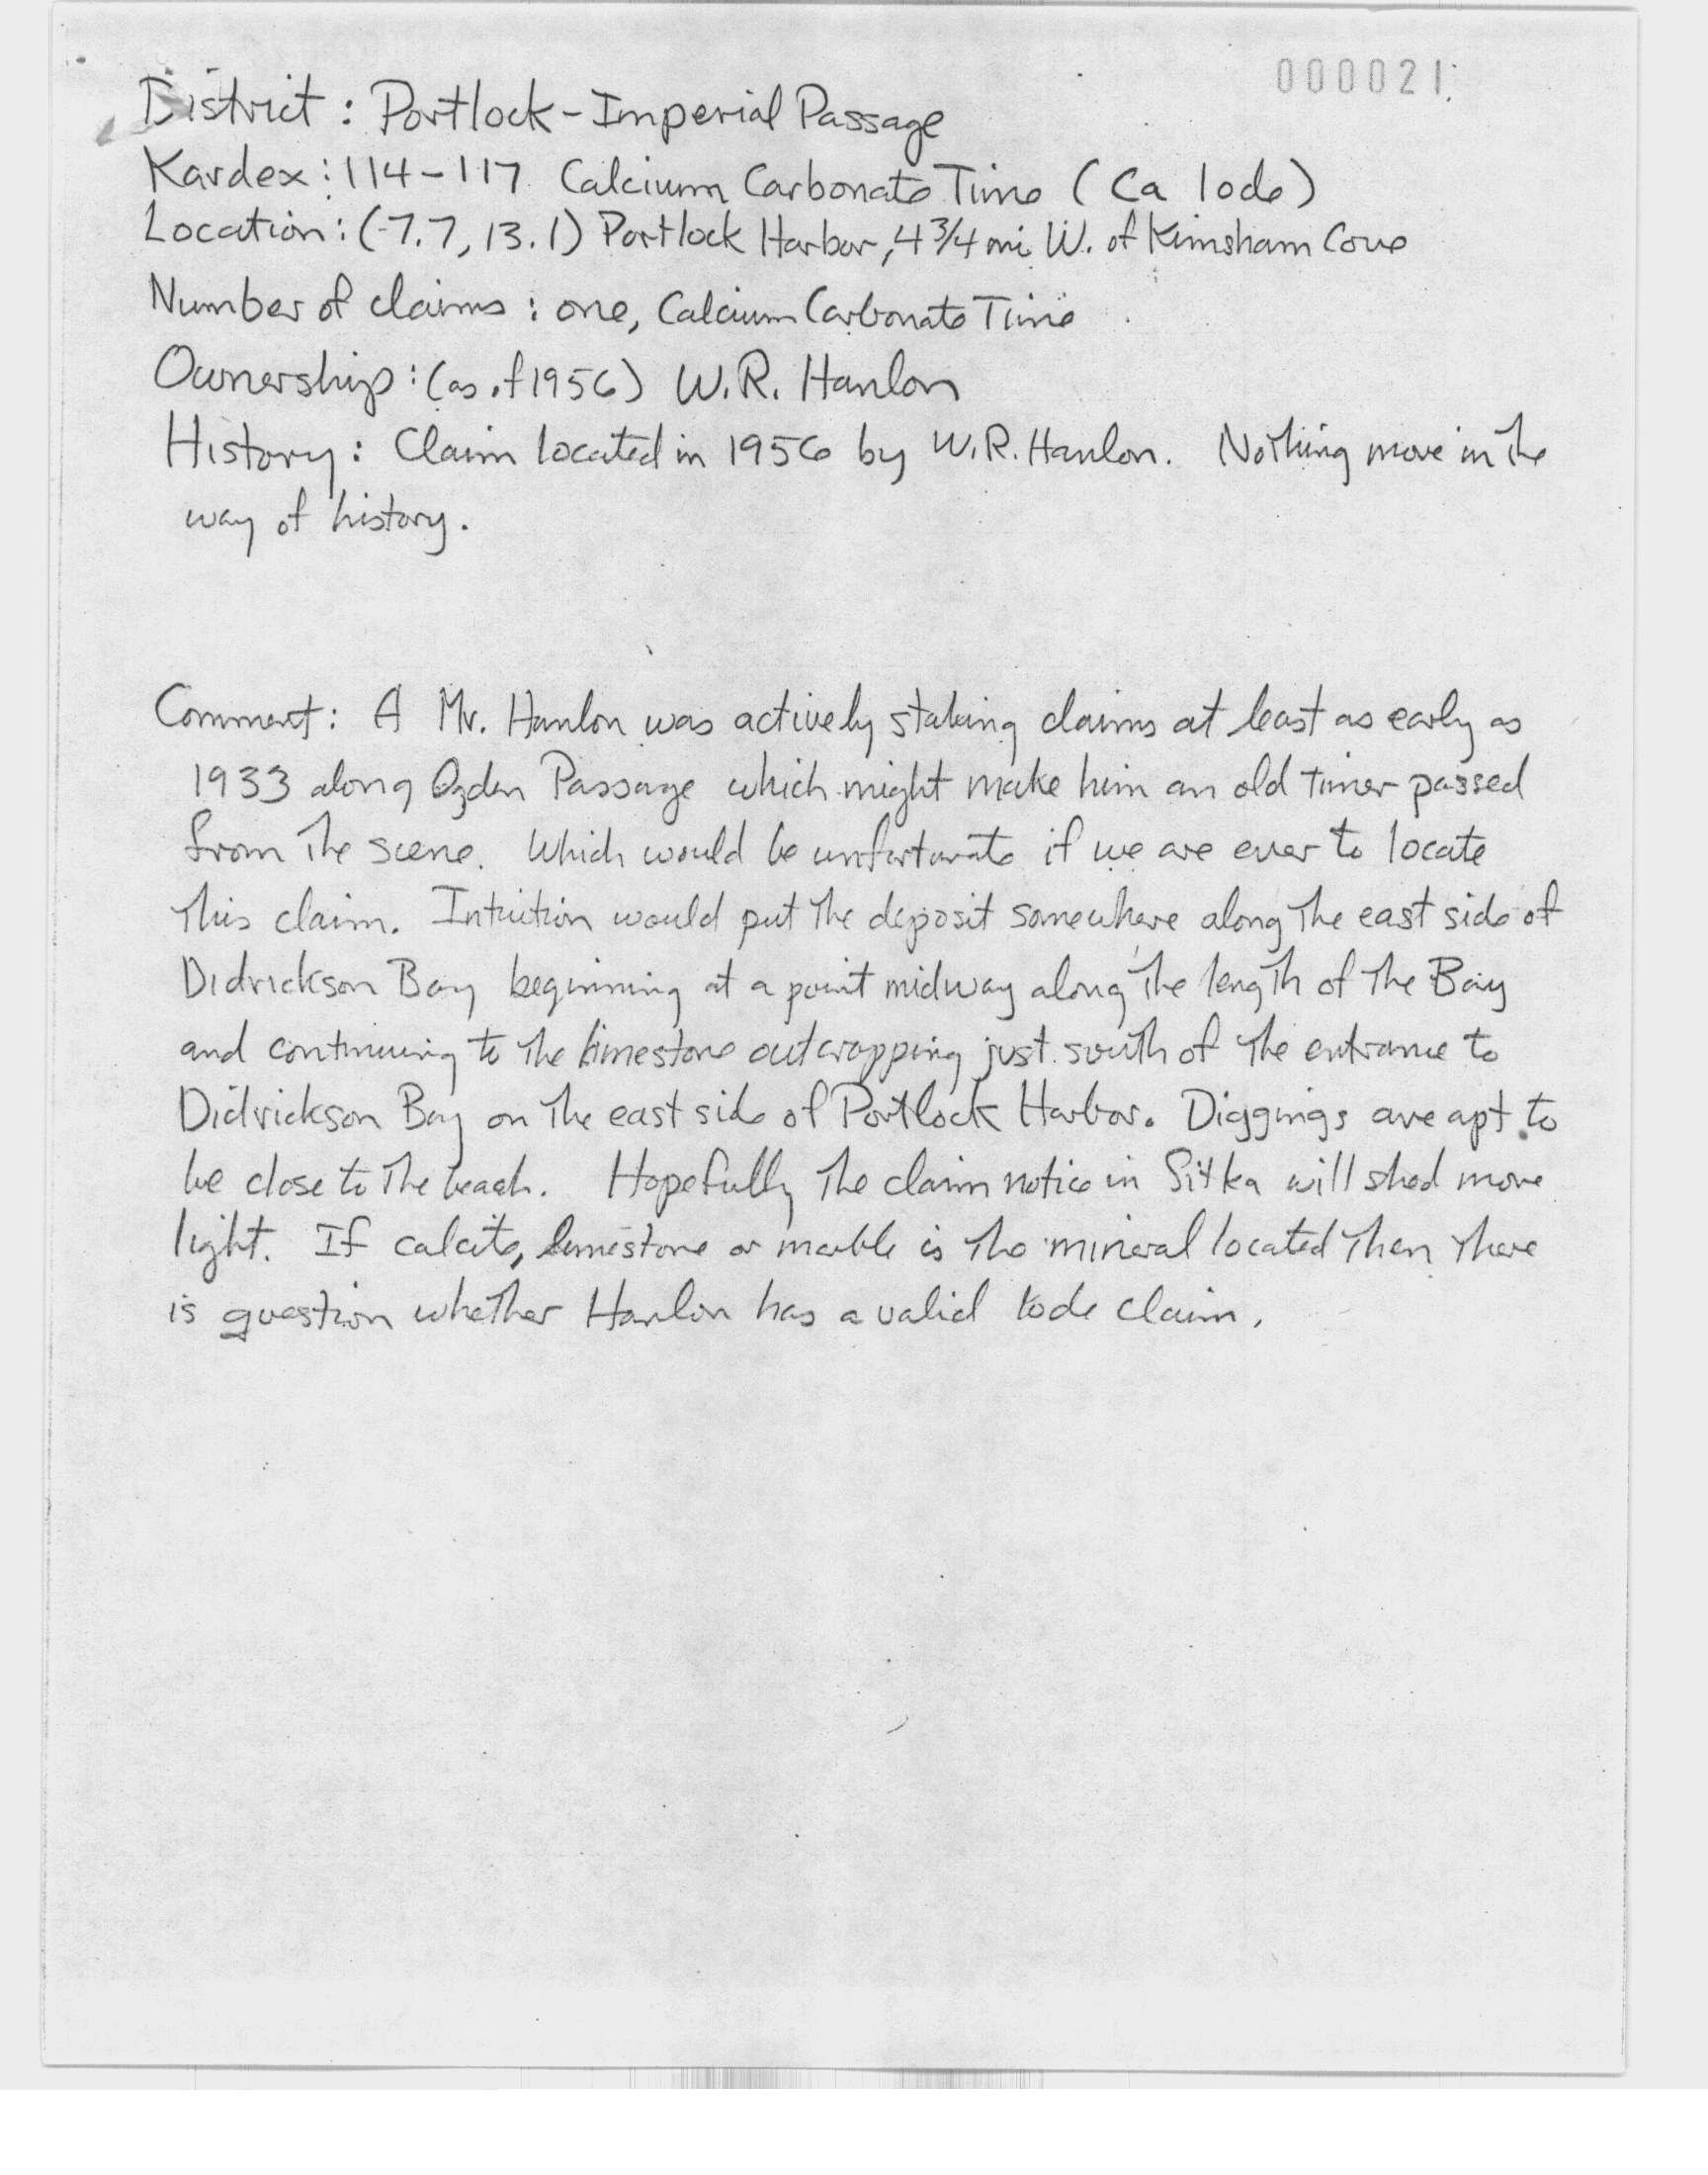 000021
District: Portlock-Imperial Passage
Kardex: 114-117 Calcium Carbonate Time (Ca lode)
Location: (-7.7, 13.1) Portlock Harbor, 4 3/4 mi W. of Kimsham Cove
Number of claims: one, Calcium Carbonate Time
Ownership: (as of 1956) W.R. Hanlon
History: Claim located in 1956 by W.R. Hanlon. Nothing more in the
way of history.
Comment: A Mr. Hanlon was actively staking claims at least as early as
1933 along Ogden Passage which might make him an old timer passed
from the scene. Which would be unfortunate if we are ever to locate
this claim. Intuition would put the deposit somewhere along the east side of
Didrickson Bay beginning at a point midway along the length of the Bay
and continuing to the limestone outcropping just south of the entrance to
Didrickson Bay on the east side of Portlock Harbor. Diggings are apt to
be close to the beach. Hopefully the claim notice in Sitka will shed more
light. If calcite, limestone or marble is the mineral located then there
is question whether Hanlon has a valid lode claim.